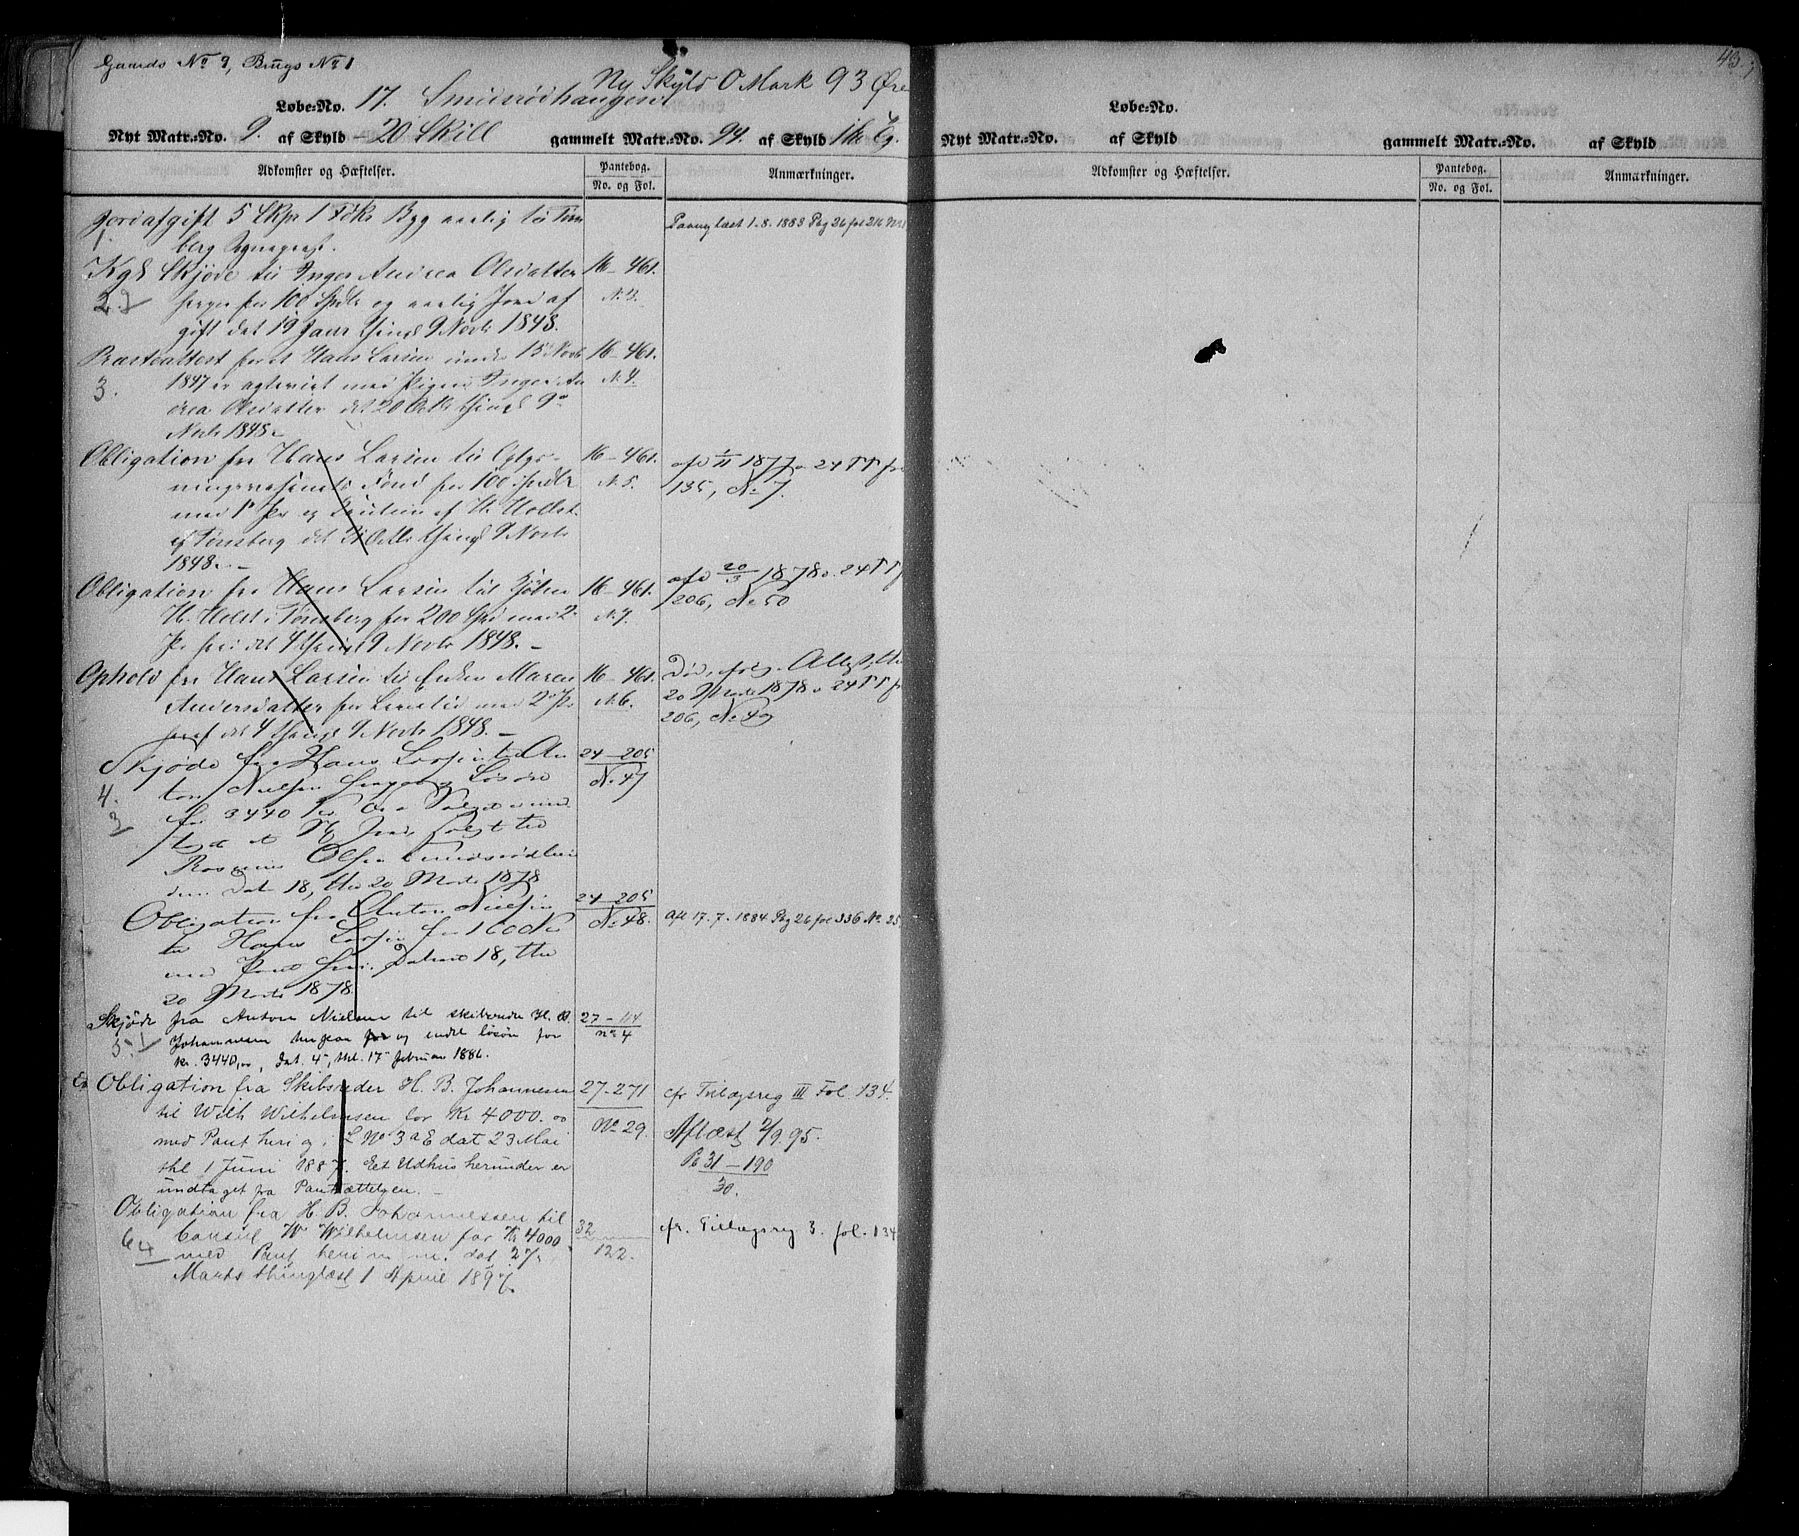 43
Gaards No 9, Brugs No 1
Ny Skyld 0 Mark 93 Øre
Løbe-No. 17. Smidsrødhaugen
Nyt Matr.-No. 9. af Skyld 20 Skill gammelt Matr.-No. 94. af Skyld
Adkomster og Hæftelser. Pantebog. No. og Fol. Anmærkninger.
Jordafgift 5 Skpr 1 Fdkr Byg aarlig til Tøns
1. berg
Paany læst 1-8. 1883 Pbg 26 fol 216
Kgl Skjøde til Inger Andrea Olsdatter 16-461.
2. for 100 Spdlr og aarlig Jord af N. 3.
gift dat 19 Janr thingl 9 Novbr 1848.
Præsteattest for at Hans Larsen under 13 Novbr 16-461.
3. 1847 er ægteviet med Pigen Inger An N. 4.
drea Olsdatter dat 20 Octbr thingl 9de
Novbr 1848.
Obligation fra Hans Larsen til Oplys- 16-461.
ningsvæsenets Fond for 100 Spdlr N. 5.
med 1 Pr og
i Tønsberg dat Octbr thingl 9 Novbr
1848.
1877 24
135, No 7.
Obligation fra Hans Larsen til 16-461.
H. Holst i Tønsberg for 200 Spd med 2 N. 7.
Pr dat 4 thingl 9 Novbr 1848.
20/3 1878 24
206, No 50
Ophold fra Hans Larsen til Enken Maren 16-461.
Andersdatter for Livstid med 2 Pr N. 6.
dat 4 thingl 9 Novbr 1848.
Død, Attest,
20 Marts 1878 24
206, No 49
Skjøde fra Hans Larsen til An 24-205
4. ton Nielsen Løsøre No 47
3 for 3440 Kr
Olsen
dat 18, thl 20 Marts 1878
Obligation fra Anton Nielsen 24-205
til Hans Larsen for 1600 Kr No 48.
med Pant heri. Dateret 18, thl
20 Marts 1878.
Afl 17.7.1884 Pbg 26 fol 336 No 25
Skjøde fra Anton Nielsen til skibsreder H. B. 27-114
5. Johannesen herpaa og endel løsøre for No 4
kr. 3440,00, dat. 4, thl. 17 februar 1886.
Obligation fra Skibsreder H. B. Johannesen 27-271
til Wilh Wilhelmsen for Kr 4000.00 No 29.
med Pant heri og i L No 3 a E dat 23 Mai
thl 1 Juni 1887. Eet Udhus herunder er
undtaget fra Pantsættelsen.
cfr Tillægsreg III Fol. 134.
Aflæst 2/9. 95.
Pb 31-190
30.
Obligation fra H. B. Johannessen til 32
6 Consul W Wilhelmsen for Kr 4000 122.
med Pant heri m. m. dat 27
Marts thinglæst 1 April 1897
cfr. Tillægsreg 3. fol. 134
Løbe-No.
Nyt Matr.-No. af Skyld gammelt Matr.-No. af Skyld
Adkomster og Hæftelser. Pantebog. No. og Fol. Anmærkninger.